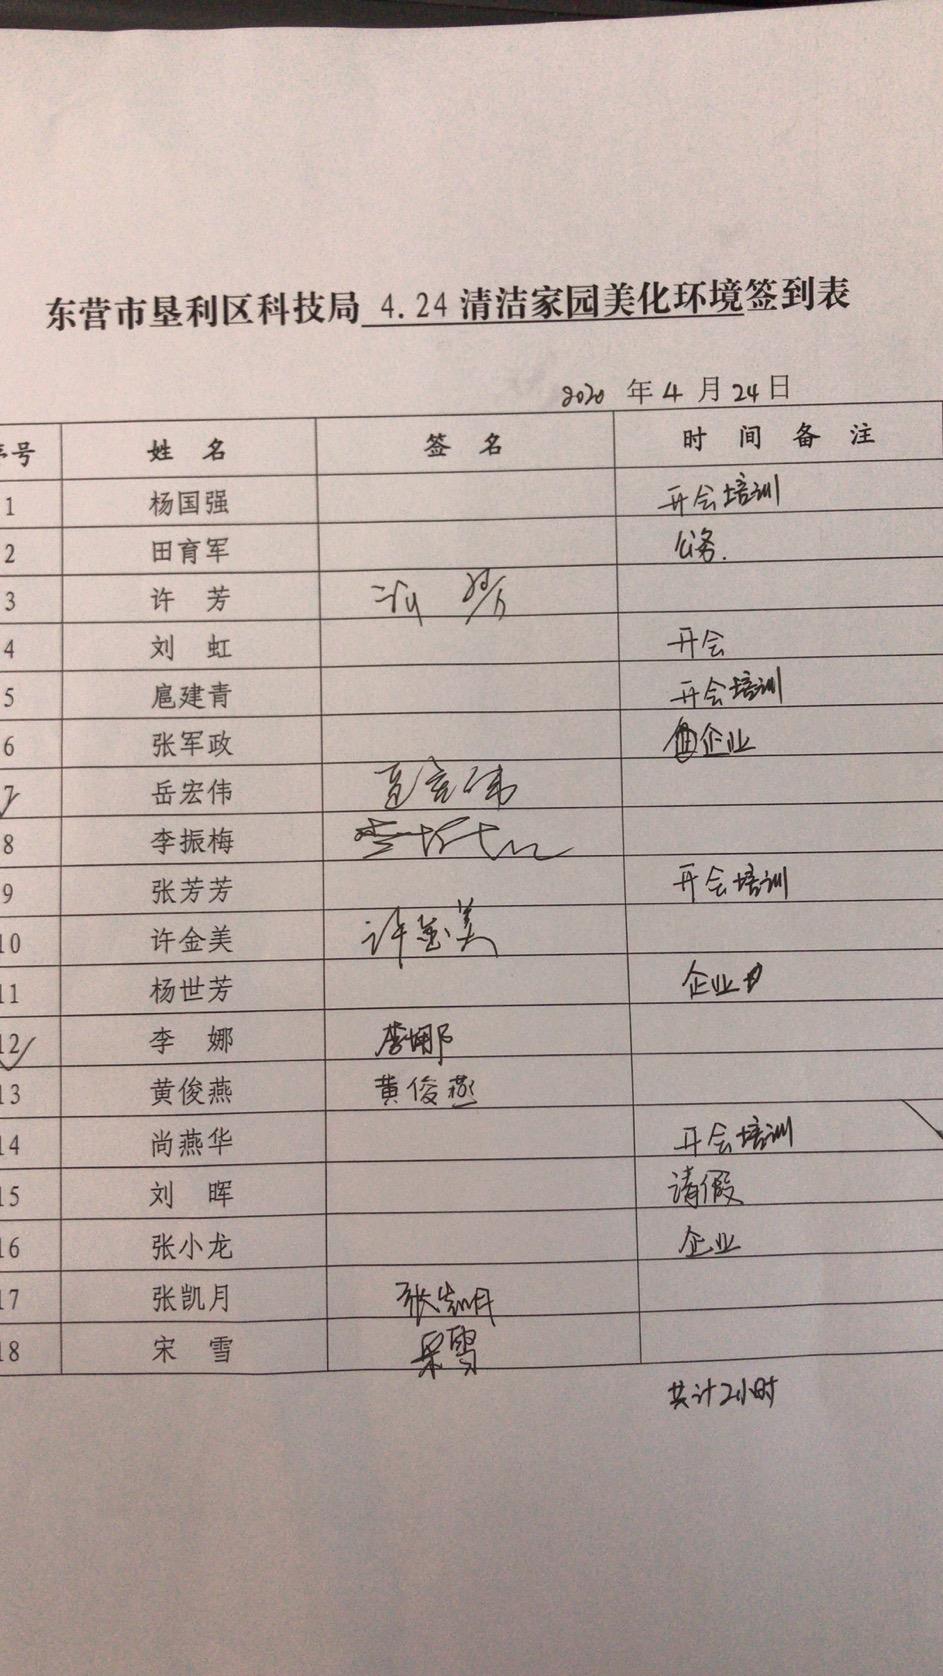 东营市垦利区科技局 4.24 清洁家园美化环境签到表
2020 年 4 月 24 日
序号 姓 名 签 名 时 间 备 注
1 杨国强 开会培训
2 田育军 公务.
3 许 芳 许 芳
4 刘 虹 开会
5 扈建青 开会培训
6 张军政 企业
7 岳宏伟 岳宏伟
8 李振梅 李振梅
9 张芳芳 开会培训
10 许金美 许金美
11 杨世芳 企业
12 李 娜 李娜
13 黄俊燕 黄俊燕
14 尚燕华 开会培训
15 刘 晖 请假
16 张小龙 企业
17 张凯月 张凯月
18 宋 雪 宋雪
共计2小时